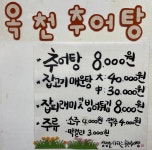 옥천추어탕
추어탕 8,000원
잡고기 매운탕 大: 40,000원
中: 30,000원
주류 소주 4,000원 맥주 4,000원
막걸리 3,000원